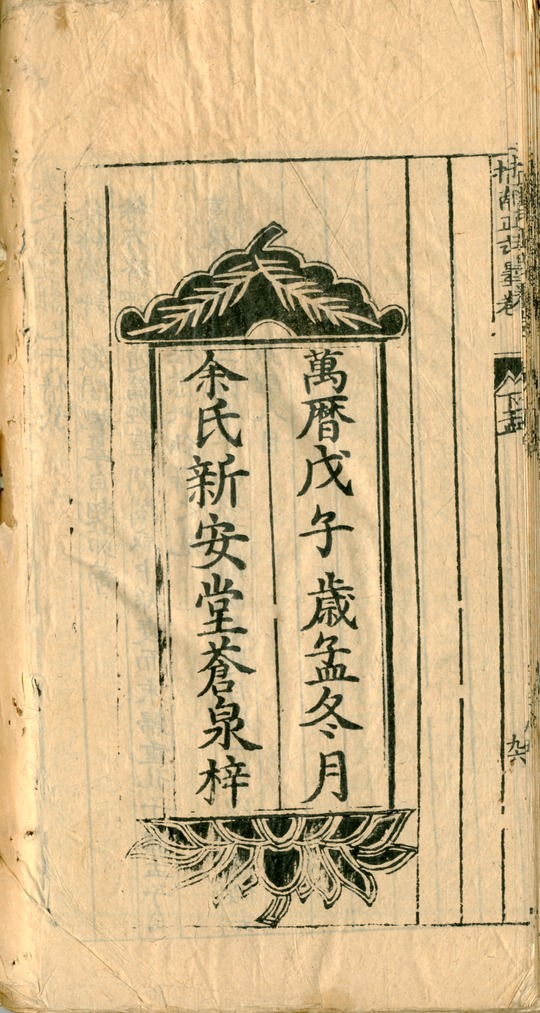 萬曆戊子歲孟冬月
余氏新安堂蒼泉梓
下孟
九六